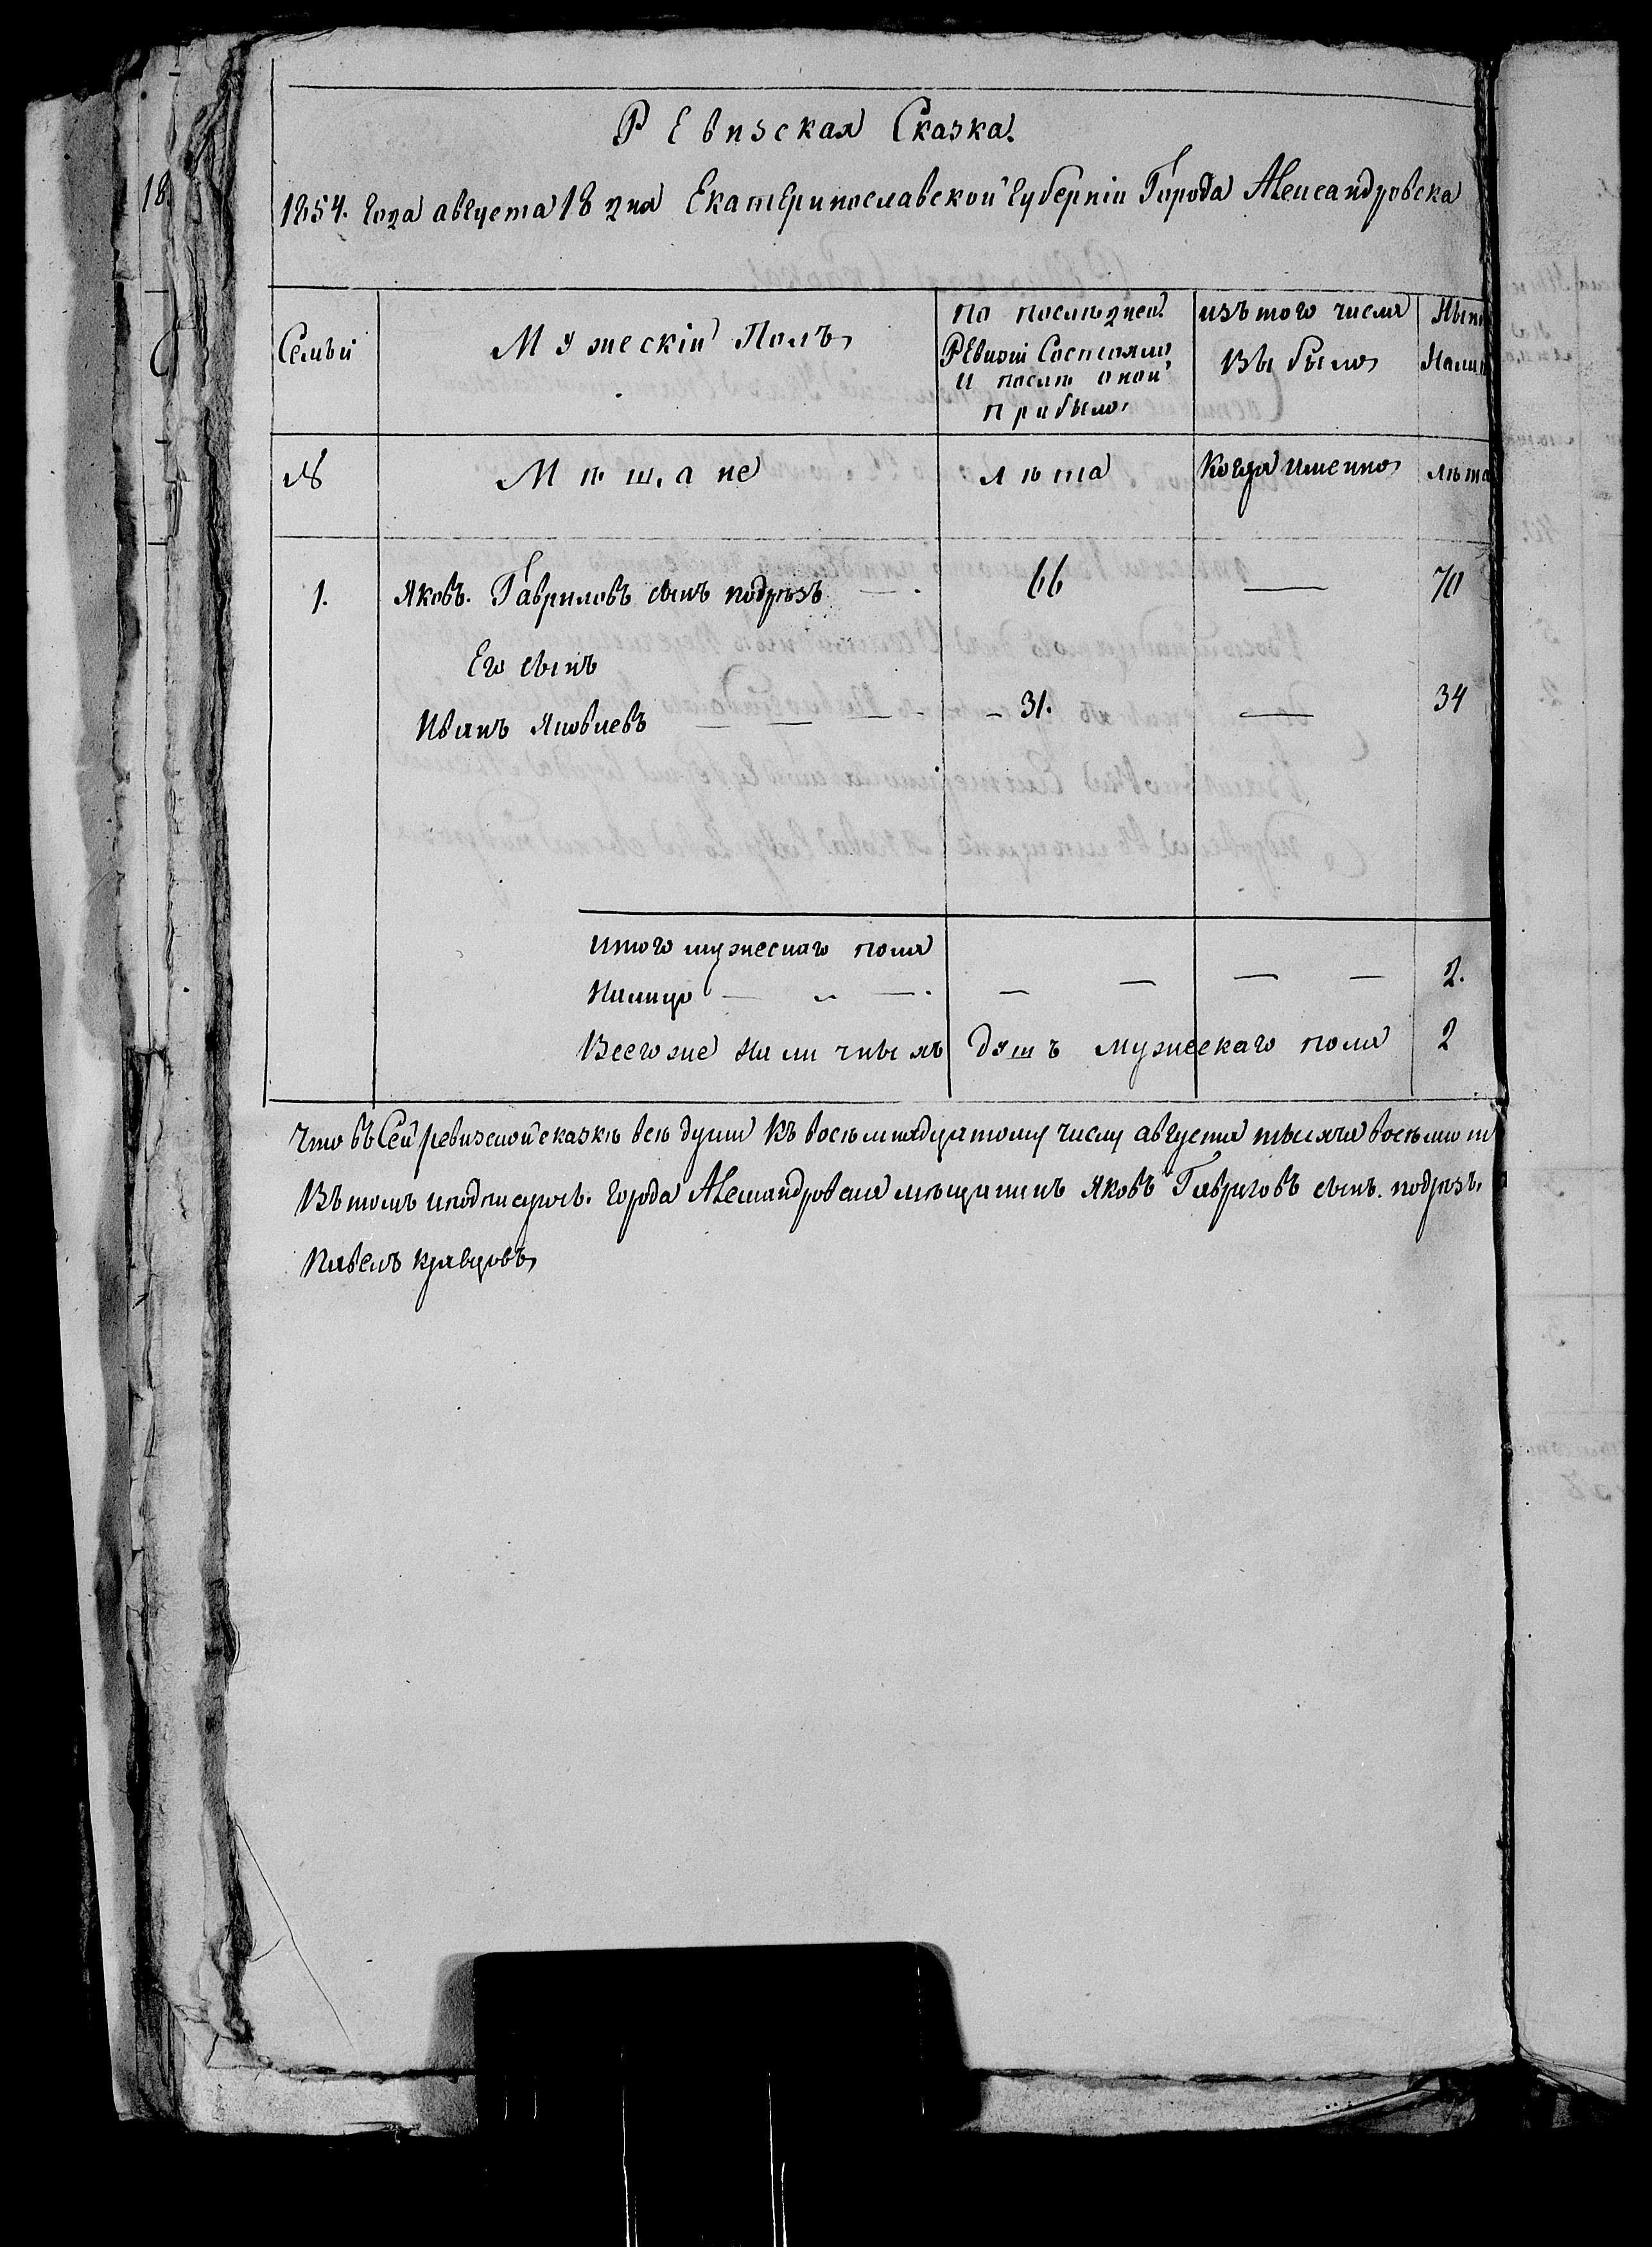 Ревизская Сказка.
1854. года августа 18 дня Екатеринославской губерніи Города Александровска
Семьи
Мужескій Полъ
По послѣдней
Ревизіи Состояло
и послѣ оной
прибыло
изъ того числа
Выбыло
Нын
Нали
№
Мѣщане
лѣта
Когда именно
лѣта
1.
Яковъ Гавриловъ сынъ подрѣзъ
66
—
70
Его сынъ
Иванъ Яковлевъ
31.
—
34
Итого мужескаго пола
Налицо
2.
Всего же наличныхъ душъ мужескаго пола
2
Что въ Сей ревизской сказкѣ всѣ души къ восемнадцатому числу августа тысяча восемьсот
Въ томъ и подписуюсь. города Александровска мѣщанинъ Яковъ Гавриловъ сынъ. подрѣзъ.
Павелъ Кравцовъ
18